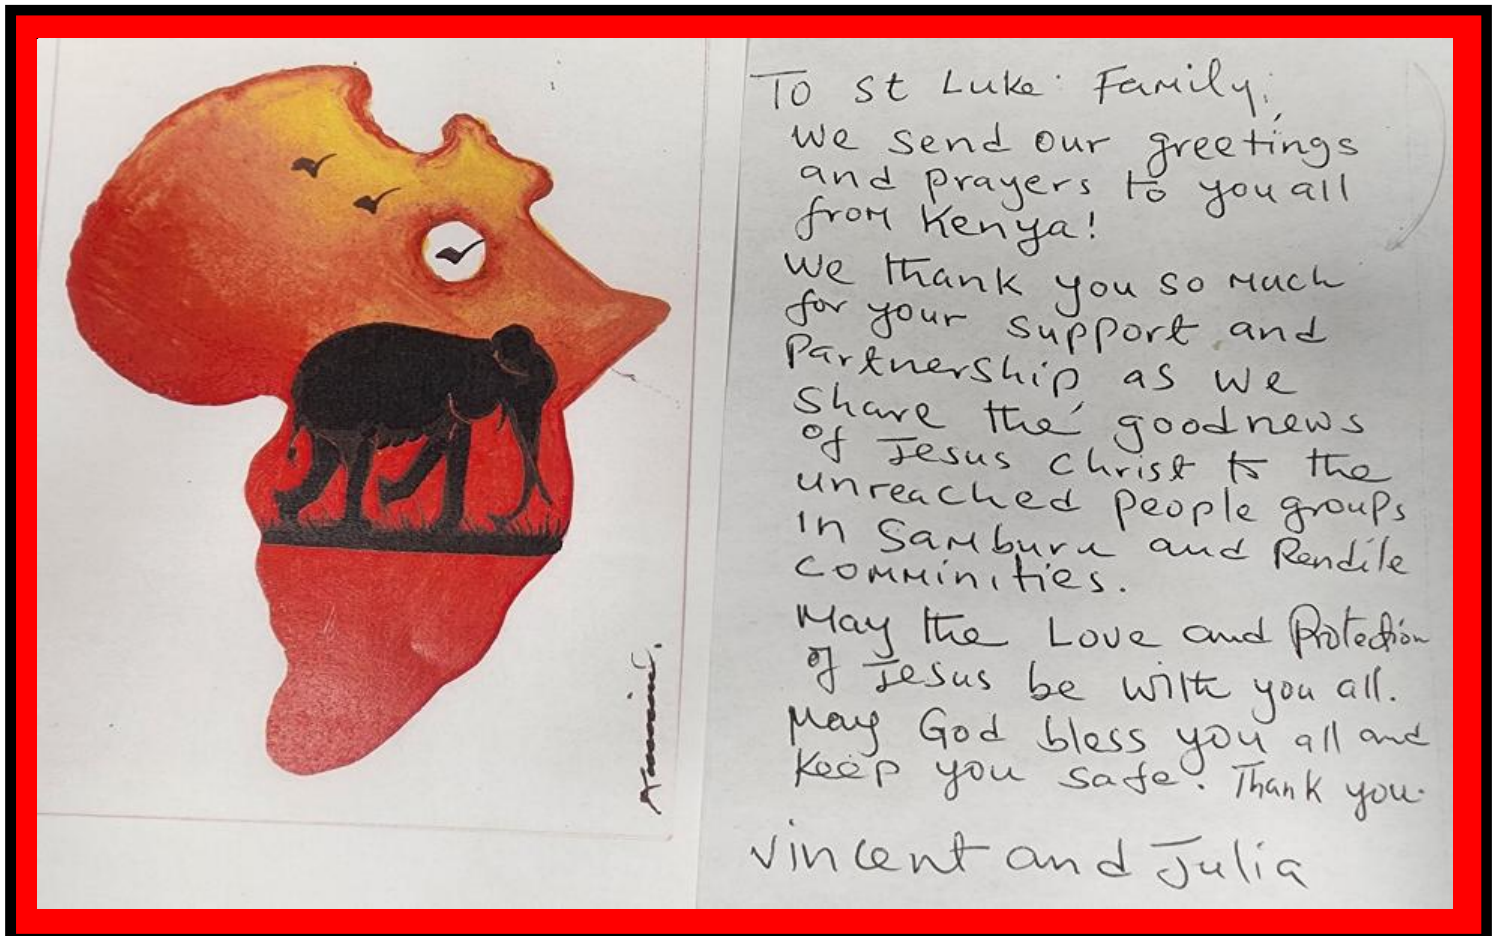 To st Luke Family,
We send our greetings
and prayers to you all
from Kenya!
We thank you so much
for your support and
Partnership as we
share the goodnews
of Jesus Christ to the
unreached people groups
in Samburu and Rendile
Comminities.
May the Love and Protection
of Jesus be with you all.
May God bless you all and
keep you safe. Thank you.
Vincent and Julia